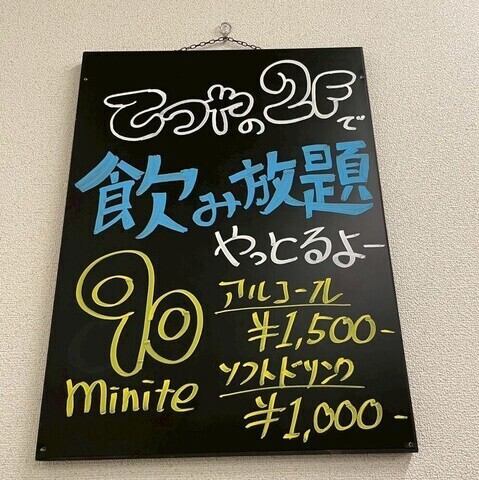 てつやの2Fで
飲み放題
やっとるよー
90
minite
アルコール
¥1,500-
ソフトドリンク
¥1,000-